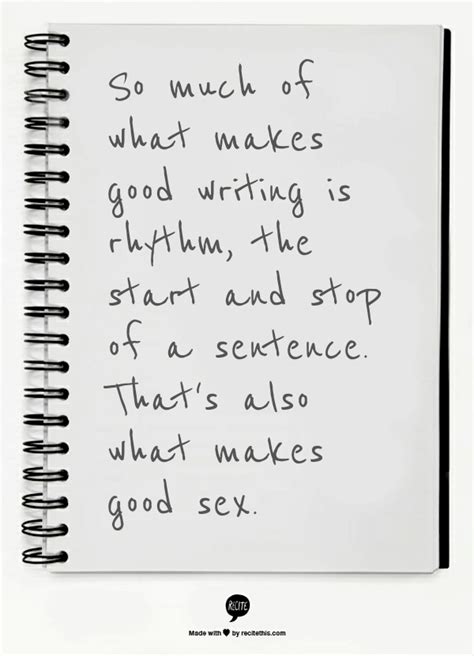 So much of
what makes
good writing is
rhythm, the
start and stop
of a sentence.
That's also
what makes
good sex.
RECITE
Made with ♥ by recitethis.com